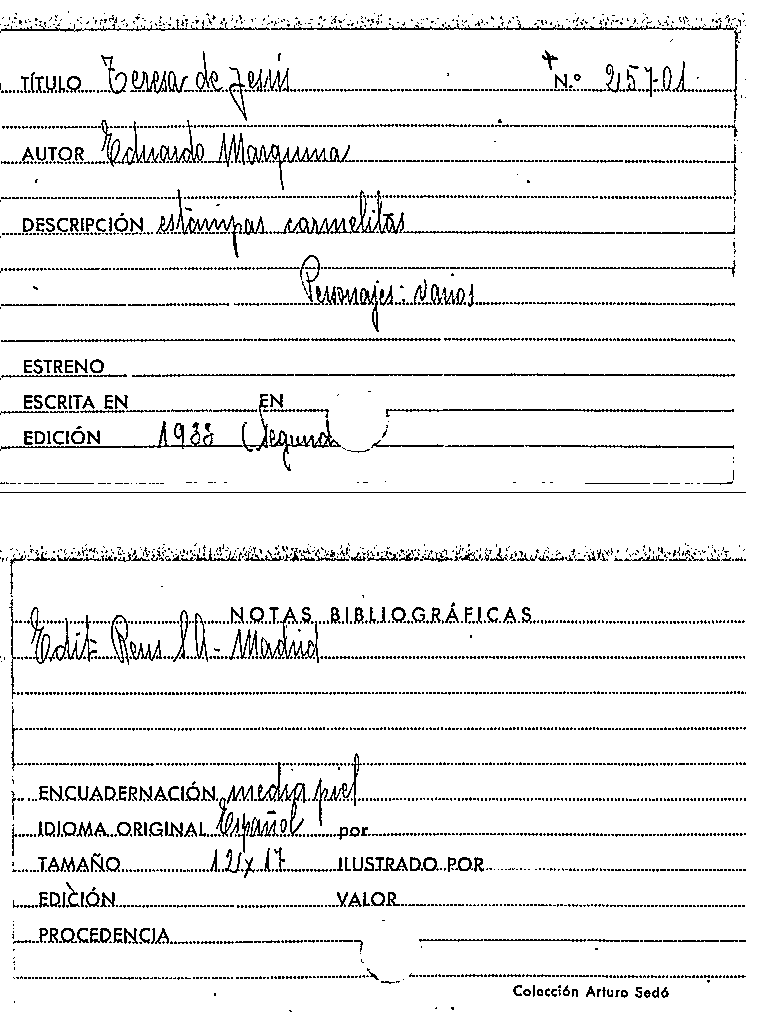 TÍTULO Teresa de Jesús N.º 257-01
AUTOR Eduardo Marquina
DESCRIPCIÓN estampas carmelitas
Personajes: varios
ESTRENO
ESCRITA EN EN
EDICIÓN 1933 (Segund
NOTAS BIBLIOGRÁFICAS
Edit Reus S.A- Madrid
ENCUADERNACIÓN media piel
IDIOMA ORIGINAL Español por
TAMAÑO 12 x 17 ILUSTRADO POR
EDICIÓN VALOR
PROCEDENCIA
Colección Arturo Sedó